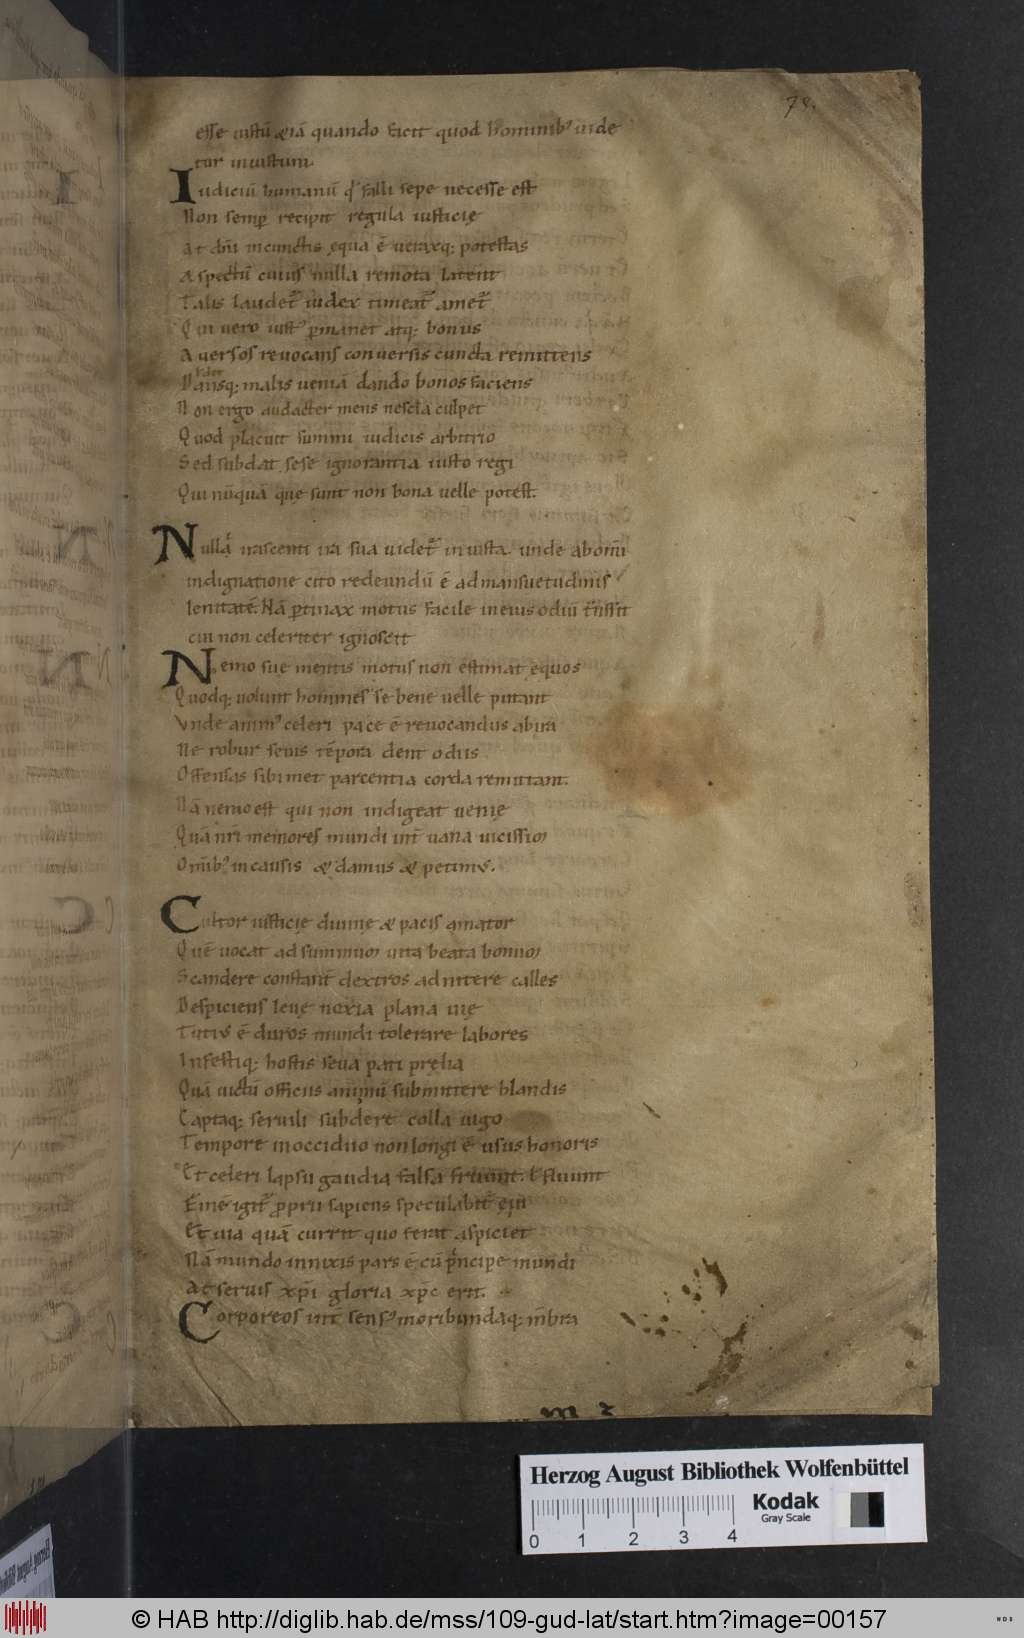 78.
esse iustū etiā quando facit quod hominib; uide
tur iniustum.
Iudiciū humanū falli sepe necesse est
Non semp recipit regula iusticię
At dñi incunctis ęqua ē ueraxq; potestas
Aspectū cuius nulla remota latent
Talis laudet iudex timeat amet
Qui uero iust pmanet atq; bonus
Auersos reuocans conuersis cuncta remittens
malis ueniā dando bonos faciens
Non ergo audacter mens nescia culpet
Quod placuit summi iudicis arbitrio
Sed subdat sese ignorantia iusto regi
Qui nūquā quę sunt non bona uelle potest.
Nulla irascenti ira sua uidet iniusta. unde abomī
indignatione cito redeundū ē admansuetudinis
lenitatē. Nā ptinax motus facile ineius odiū trāsit
cui non celeriter ignoscit
Nemo suę mentis motus non estimat ęquos
Quodq; uolunt homines se bene uelle putant
Vnde anim celeri pace ē reuocandus abira
Ne robur seuis tēpora dent odiis
Offensas sibimet parcentia corda remittant.
Nā nemo est qui non indigeat uenię
Quā nri memores mundi uana
Omīb; incausis et damus et petim.
Cultor iusticię diuinę et pacis amator
Quē uocat ad uita beata
Scandere constant dextros adnitere calles
Despiciens leuę noxia plana uię
Tuti ē duros mundi tolerare labores
Infestiq; hostis seua pati pręlia
Quā uictū officiis animū submittere blandis
Captaq; seruili subdere colla iugo
Tempore inocciduo non longi ē usus honoris
Et celeri lapsu gaudia falsa fluunt
igit pprii sapiens speculabit
Et uia quā currit quo ferat aspiciet
Nā mundo innixis pars ē cū pncipe mundi
At seruis xpi gloria xpc erit.
Corporeos int sens moribundaq; mbra
Herzog August Bibliothek Wolfenbüttel
0 1 2 3 4
Kodak
Gray Scale
© HAB http://diglib.hab.de/mss/109-gud-lat/start.htm?image=00157